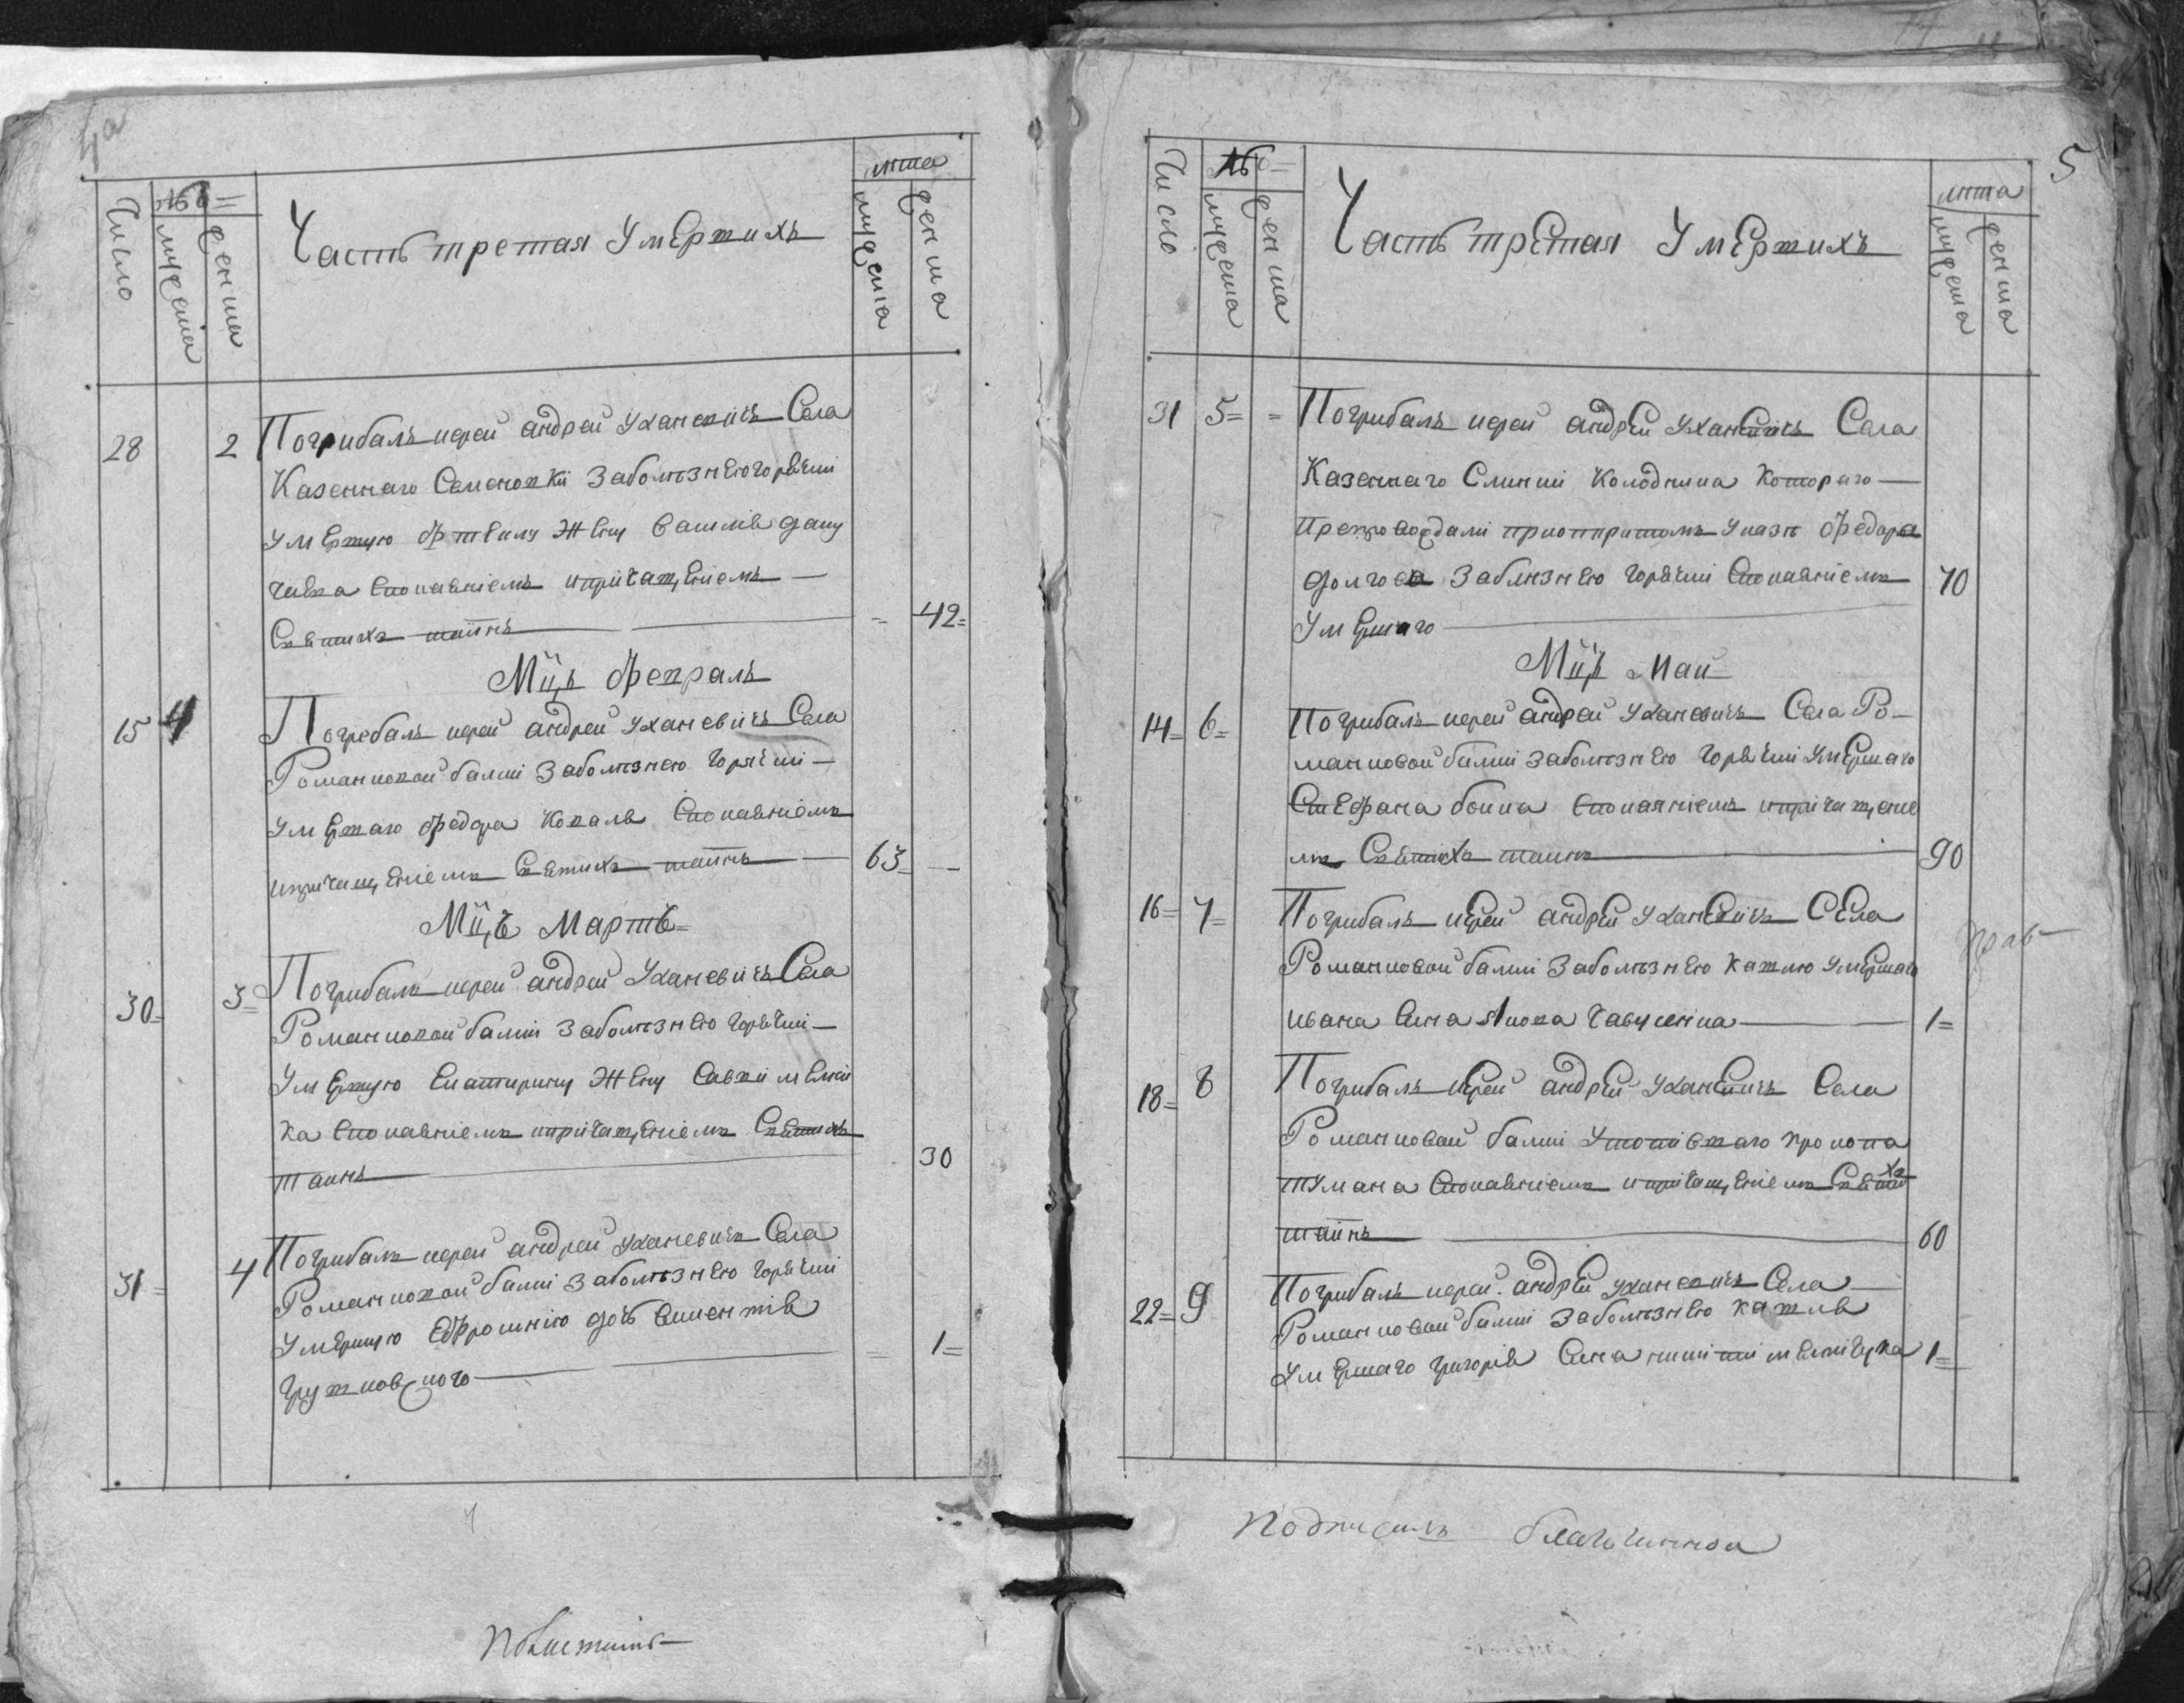 4а
Число
№
мужеска
женска
Часть третая Умершихъ
лѣта
мужеска
женска
28 2 Погрибалъ иерей андрей Уханевичъ Села
Казеннаго Семеновки Заболѣзнею горячки
Умершую жену
чика Спокаяніемъ ипричащеніемъ
Святихъ таинъ = 42=
Мцъ февраль
15 4 Погребалъ иерей андрей Уханевичъ Села
Романковой балки Заболѣзнею горячки
Умершаго федора Коваля Спокаяніемъ
ипричащеніемъ Святихъ таинъ 63=
Мцъ Мартъ=
30= 3= Погрибалъ иерей андрей Уханевичъ Села
Романковой балки Заболѣзнею горячки
Умершую Екатирину жену Савки мелни
ка Спокаяніемъ ипричащеніемъ Святихъ
таинъ 30
31= 4 Погрибалъ иерей андрей Уханевичъ Села
Романковой балки Заболѣзнею горячки
Умершую Ефросинію дочь
Грушковского = 1=
5
Число
№
мужеска
женска
Часть третая Умершихъ
лѣта
мужеска
женска
31 5= = Погрибалъ иерей андрей Уханевичъ Села
Казеннаго Колодника Котораго
федора
Долгова Заблизнею горячки Спокаяніемъ 70
Умершаго
Мцъ Маи
14= 6= Погрибалъ иерей андрей Уханевичъ Села Ро-
манковой балки Заболѣзнею горячки Умершаго
Стефана Спокаяніемъ ипричащение
мъ Святихъ таинъ 90
16= 7= Погрибалъ иерей андрей Уханевичъ Села
Романковой балки Заболѣзнею кашлю Умершаго
Ивана Сина Якова 1=
18= 8 Погрибалъ иерей андрей Уханевичъ Села
Романковой балки Прокопа
тумана Спокаяніемъ ипричащеніемъ Святихъ
таинъ 60
22= 9 Погрибалъ иерей андрей Уханевичъ Села
Романковой балки Заболѣзнею кашля
Умершаго григорія Сина мелничука 1=
благочинной